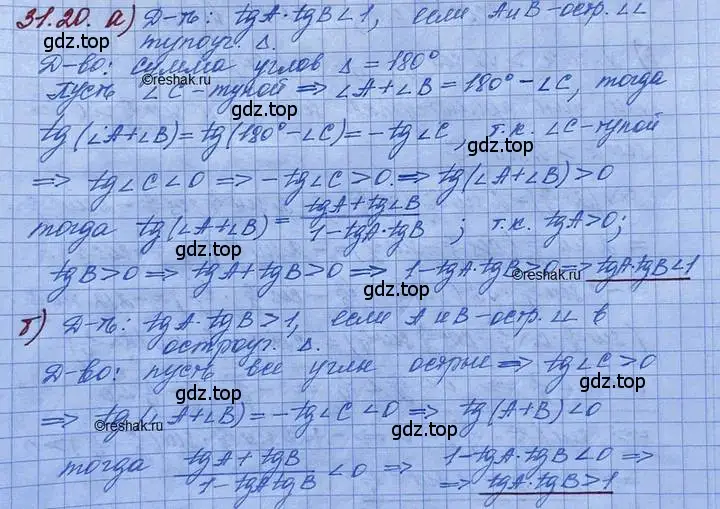 31.20. а) Д-ть: tgA·tgB<1, если A и B - остр. ∠∠
тупоуг. Δ.
Д-во: сумма углов Δ = 180°
Пусть ∠C - тупой ⇒ ∠A+∠B = 180° - ∠C, тогда
tg(∠A+∠B) = tg(180° - ∠C) = -tg∠C, т.к. ∠C - тупой
⇒ tg∠C < 0 ⇒ -tg∠C > 0 ⇒ tg(∠A+∠B) > 0
тогда tg(∠A+∠B) = (tgA + tg∠B)/(1 - tgA·tgB) ; т.к. tgA > 0;
tgB > 0 ⇒ tgA + tgB > 0 ⇒ 1 - tgA·tgB > 0 ⇒ tgA·tgB < 1
б) Д-ть: tgA·tgB > 1, если A и B - остр. ∠∠ в
остроуг. Δ.
Д-во: пусть все углы острые ⇒ tg∠C > 0
⇒ tg(∠A+∠B) = -tg∠C < 0 ⇒ tg(A+B) < 0
тогда (tgA + tgB)/(1 - tgA tgB) < 0 ⇒ 1 - tgA·tgB < 0 ⇒
⇒ tgA·tgB > 1
gdz.top
gdz.top
gdz.top
gdz.top
gdz.top
gdz.top
gdz.top
gdz.top
gdz.top
gdz.top
gdz.top
gdz.top
©reshak.ru
©reshak.ru
©reshak.ru